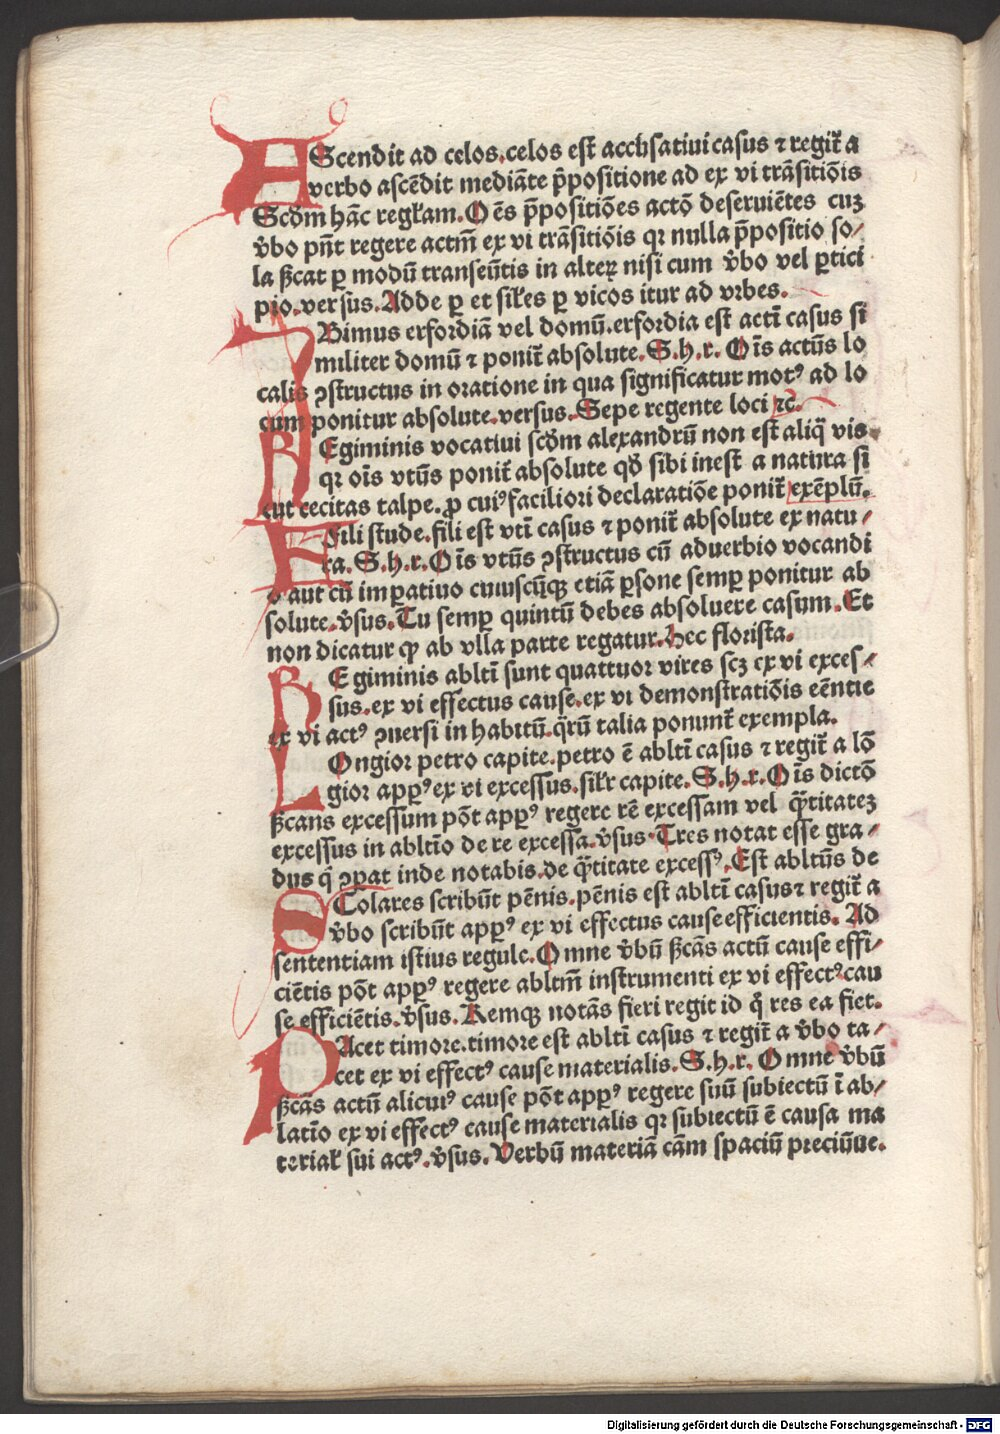 AScendit ad celos.celos est̄ accusatiui casus ⁊ regit̄ a
verbo ascēdit mediāte p̄positione ad ex vi trāsitiōis
Scd̄m hāc regłam. O ēs p̄positiōes actō deseruiētes cuʒ
v̄bo pn̄t regere actm̄ ex vi trāsitiōis qꝛ nulla p̄positio so⸗
la ßcat ꝑ modū transeūtis in alteꝝ nisi cum v̄bo vel ꝑtici
pio.versus.Adde ꝑ et siłes ꝑ vicos itur ad vrbes.
IBimus erfordiā vel domū.erfordia est actī casus si
militer domū ⁊ ponit̄ absolute.S.h.r. O īs actūs lo
calis ꝯstructus in oratione in qua significatur motꝰ ad lo
cum ponitur absolute.versus.Sepe regente loci ⁊c̄.
REgiminis vocatiui scd̄m alexandrū non est aliq̄ vis.
qꝛ oīs vtūs ponit̄ absolute qd̄ sibi inest a natura si
cut recitas talpe.ꝓ cuiꝰ faciliori declaratiōe ponit̄ exēplū.
FIli stude.fili est vtī casus ⁊ ponit̄ absolute ex natu⸗
ra.S.h.r.O īs vtūs ꝯstructus cū aduerbio vocandi
o aut cū imꝑatiuo cuiuscūqꝫ etiā ꝑsone semꝑ ponitur ab
solute.v̄sus.Tu semꝑ quintū debes absoluere casum.Et
non dicatur ꝙ ab vlla parte regatur.Hec florista.
REgiminis abltī sunt quattuor vires scʒ ex vi exces⸗
sus.ex vi effectus cause.ex vi demonstratiōis eēntie
ex vi actꝰ ꝯuersi in habitū.q̄rū talia ponunt̄ exempla.
LOngior petro capite.petro ē abltī casus ⁊ regit̄ a lō
gior apꝑꝰ ex vi excessus.siłr capite.S.h.r.O īs dictō
ßcans excessum pōt apꝑꝰ regere rē excessam vel q̄titateʒ
excessus in abltīo de re excessa.v̄sus.Tres notat esse gra⸗
dus q̄ ꝯpat inde notabis.de q̄titate excessꝰ.Est abltūs de
STolares scribūt pēnis.pēnis est abltī casus ⁊ regit̄ a
v̄bo scribūt apꝑꝰ ex vi effectus cause efficientis. Ad
sententiam istius regule.Omne v̄bū ßcās actū cause effi⸗
ciētis pōt apꝑꝰ regere abltm̄ instrumenti ex vi effectꝰ cau
se efficiētis.v̄sus.Remqꝫ notās fieri regit id q̄ res ea fiet.
PAcet timore.timore est abltī casus ⁊ regit̄ a v̄bo ta⸗
cet ex vi effectꝰ cause materialis.S.h.r. Omne v̄bū
ßcās actū alicuiꝰ cause pōt apꝑꝰ regere suū subiectū ī ab⸗
latīo ex vi effectꝰ cause materialis qꝛ subiectū ē causa ma
teriał sui actꝰ.v̄sus.Verbū materiā cām spaciū preciūue.
Digitalisierung gefördert durch die Deutsche Forschungsgemeinschaft - DFG